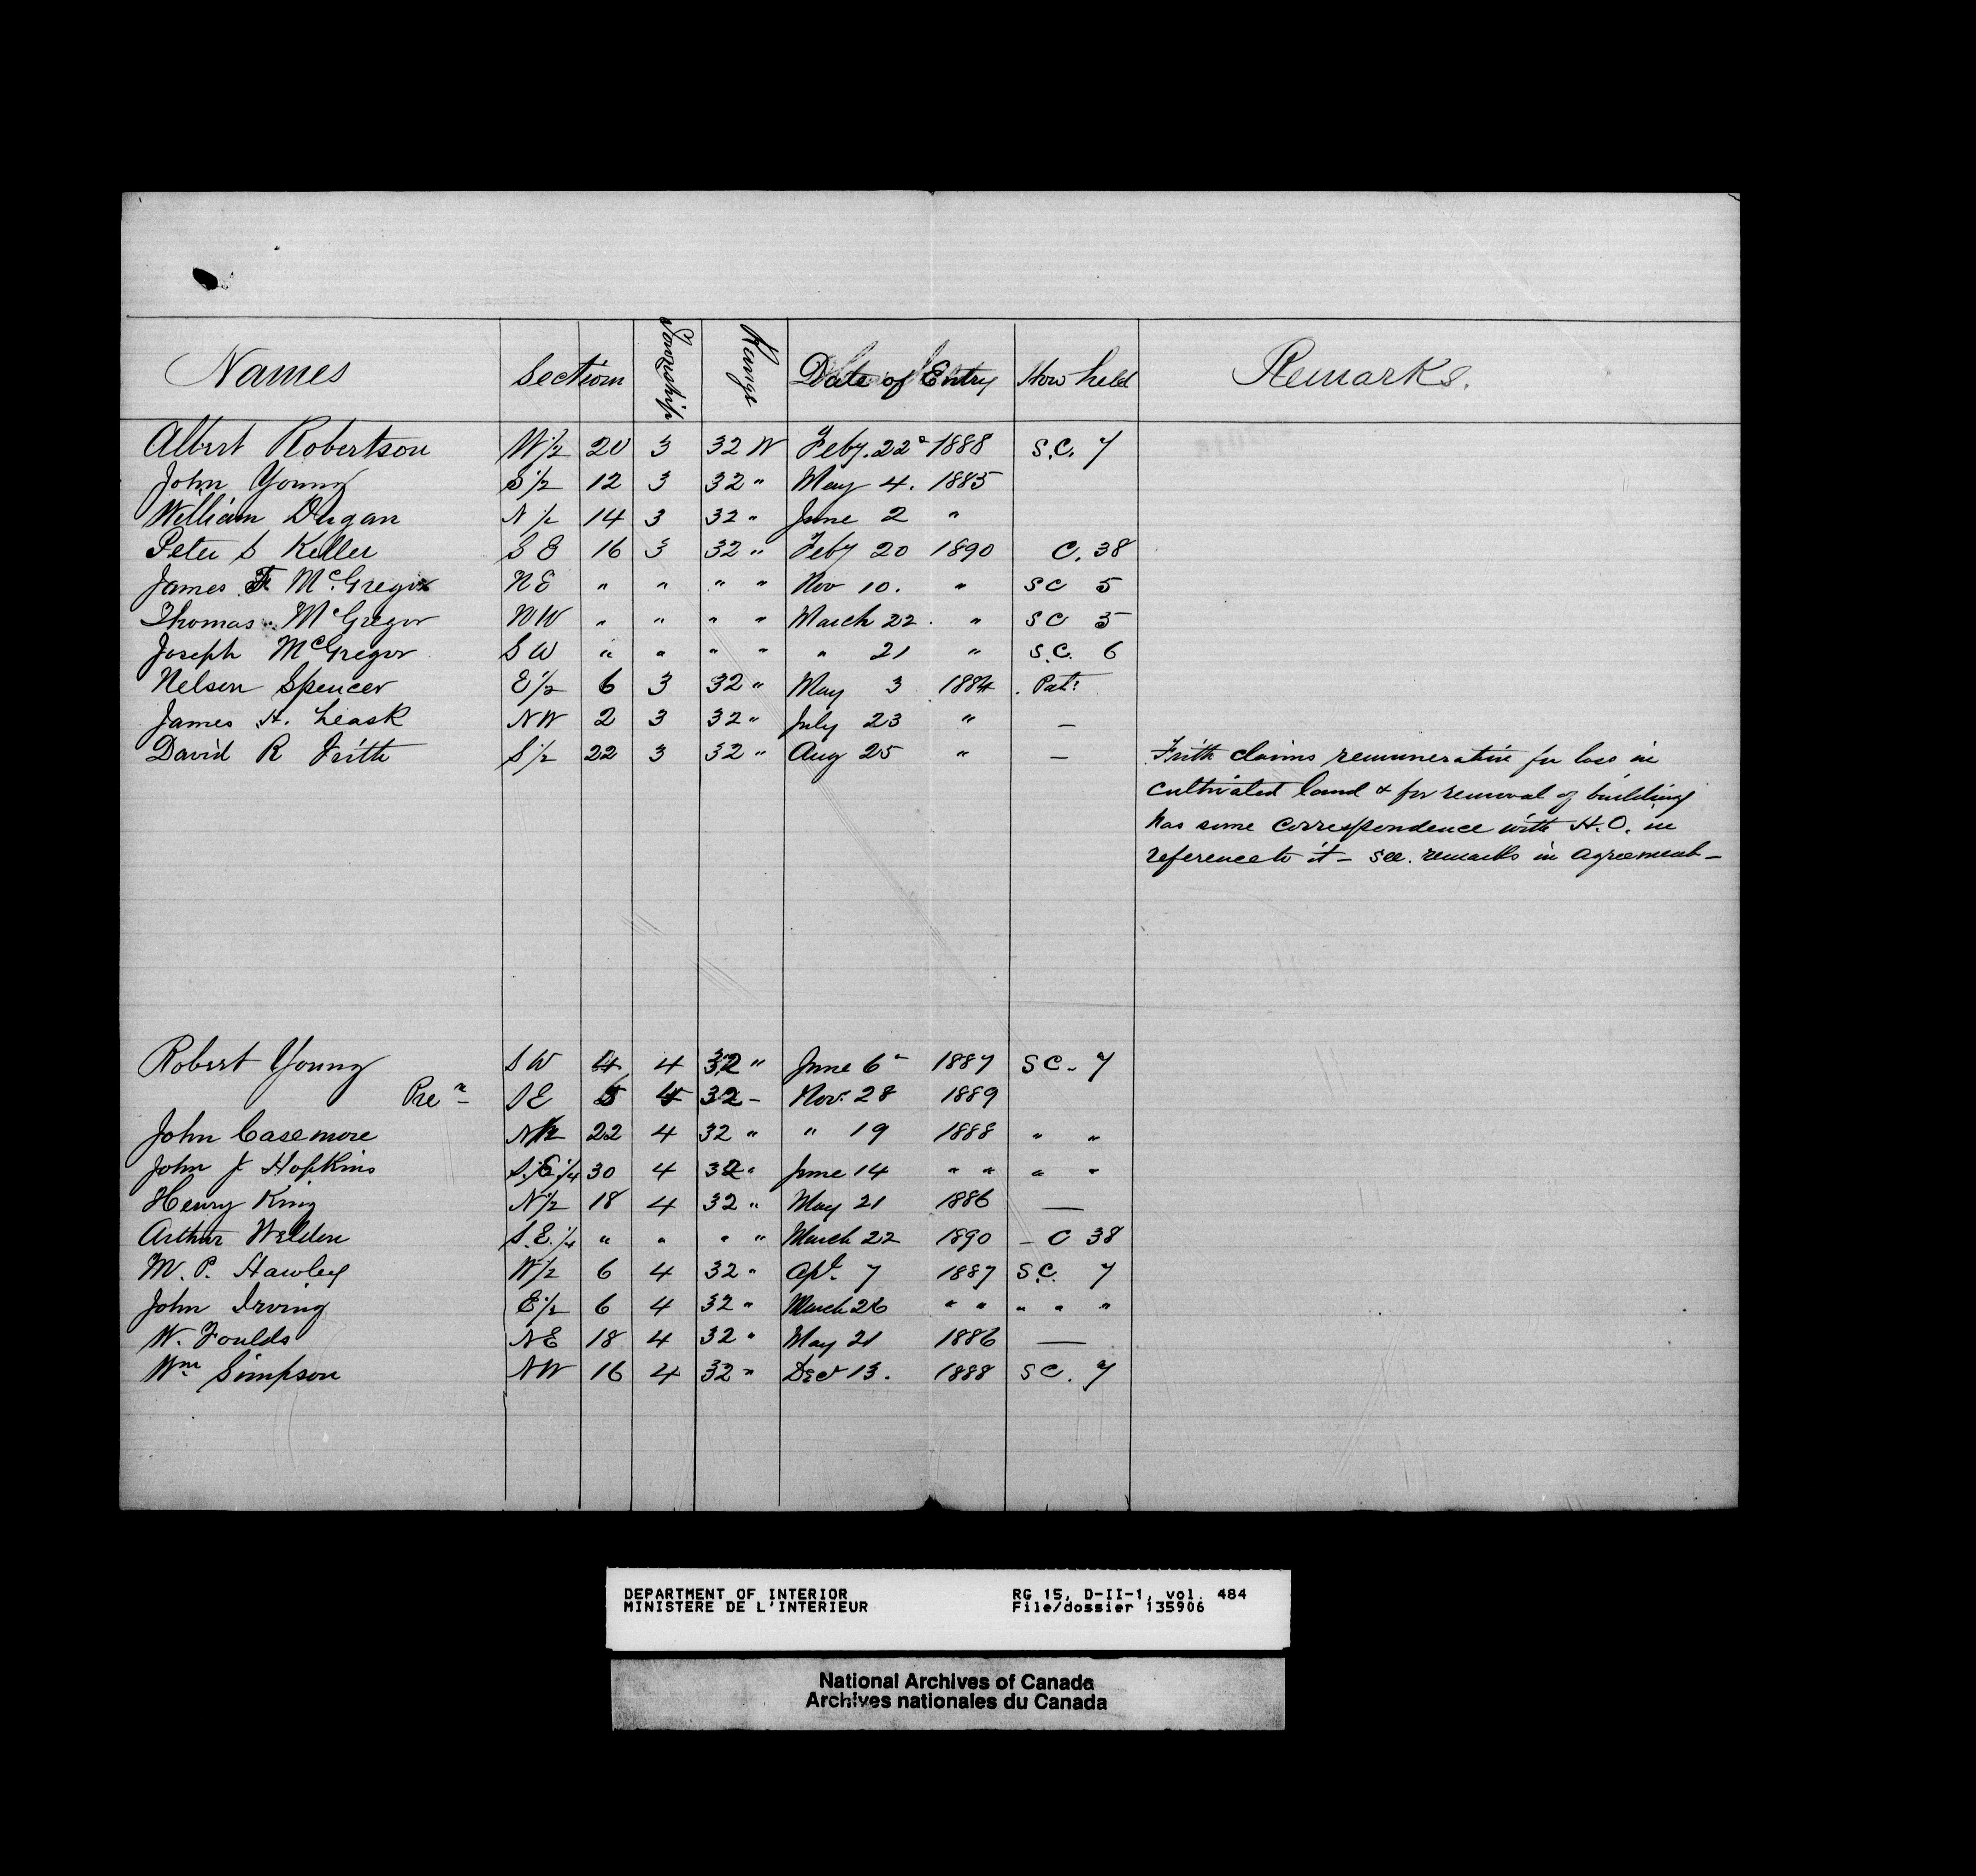 Names Section Township Range Date of Entry How held Remarks.
Albert Robertson W 1/2 20 3 32 W Feby. 22d 1888 S.C. 7
John Young S 1/2 12 3 32 " May 4. 1885
William Dugan N 1/2 14 3 32 " June 2 "
Peter S Keller S E 16 3 32 " Feby 20 1890 C. 38
James F McGregor N E " " " " Nov 10. " S C 5
Thomas " McGregor N W " " " " March 22. " S C 5
Joseph McGregor S W " " " " " 21 " S.C. 6
Nelson Spencer E 1/2 6 3 32 " May 3 1884 Pat:
James H. Leask N W 2 3 32 " July 23 " —
David R Frith S 1/2 22 3 32 " Aug 25 " — Frith claims remuneration for loss in
cultivated land & for removal of building
has some correspondence with H.O. in
reference to it – see. remarks in agreement –
Robert Young S W 4 4 32 " June 6 " 1887 S C - 7
Pre n S E 5 4 32 – Nov. 28 1889
John Casemore N 1/2 22 4 32 " " 19 1888 " "
John J Hopkins S.E 1/4 30 4 32 " June 14 " " " "
Henry King N 1/2 18 4 32 " May 21 1886 —
Arthur Weldon S.E. 1/4 " " " " March 22 1890 – C 38
M. P. Hawley W 1/2 6 4 32 " Apl. 7 1887 S.C. 7
John Irving E 1/2 6 4 32 " March 26 " " " " "
W. Foulds N E 18 4 32 " May 21 1886 —
Wm Simpson N W 16 4 32 " Dec 13. 1888 S C. 7
DEPARTMENT OF INTERIOR RG 15, D-II-1, vol. 484
MINISTERE DE L'INTERIEUR File/dossier 135906
National Archives of Canada
Archives nationales du Canada